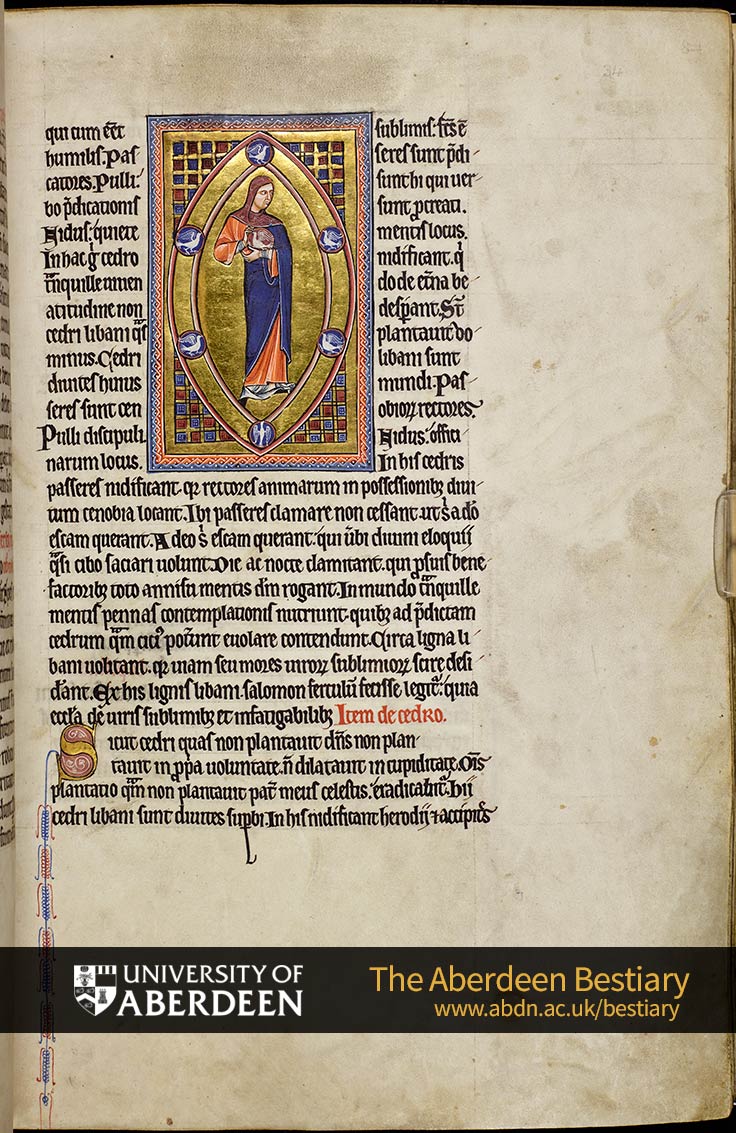 qui cum ēet sublimis: fc̄s ē
humilis. Pas seres sunt p̄di
catores. Pulli: sunt hi qui uer
bo p̄dicationis sunt procreati.
Nidus: quiete mentis locus.
In hac g̊ cedro nidificant. qͥ
tn̄quille uiuen do de etn̄a be
atitudine non desꝑant. St̄
cedri libani qͣs plantauit do
minus. Cedri libani sunt
diuites huius mundi. Pas
seres sunt cen obioꝝ rectores.
Pulli discipuli. Nidus: offici
narum locus. In his cedris
passeres nidificant. qꝛ rectores animarum in possessionibꝫ diui
tum cenobia locant. Ibi passeres clamare non cessant. ut s̄ a dō
escam querant. A deo s̄ escam querant. qui u̇bi diuini eloquii
qͣsi cibo saciari uolunt. Die ac nocte clamitant. qui ꝓ suis bene
factoribꝫ toto annisu mentis dm̄ rogant. In mundo tn̄quille
mentis pennas contemplationis nutriunt. quibꝫ ad p̄dictam
cedrum qͣm citiꝰ pot̄unt euolare contendunt. Circa ligna li
bani uolitant. qꝛ uiam seu mores uiroꝝ sublimioꝝ scire desi
d̄ant. Ex his lignis libani. salomon ferculū fecisse legitᷣ. quia
eccl̄a de uiris sublimibꝫ et infatigabilibꝫ Item de cedro.
Sicut cedri quas non plantauit dn̄s non plan
tauit in ꝓp̄a uoluntate. n̄ dilatauit in cupiditate. Om̄s
plantatio qͣm non plantauit pat̄ meus celestis. eradicabitᷣ. Hii
cedri libani sunt diuites suꝑbi. In his nidificant herodij ⁊ accipit̄s
UNIVERSITY OF
ABERDEEN
The Aberdeen Bestiary
www.abdn.ac.uk/bestiary